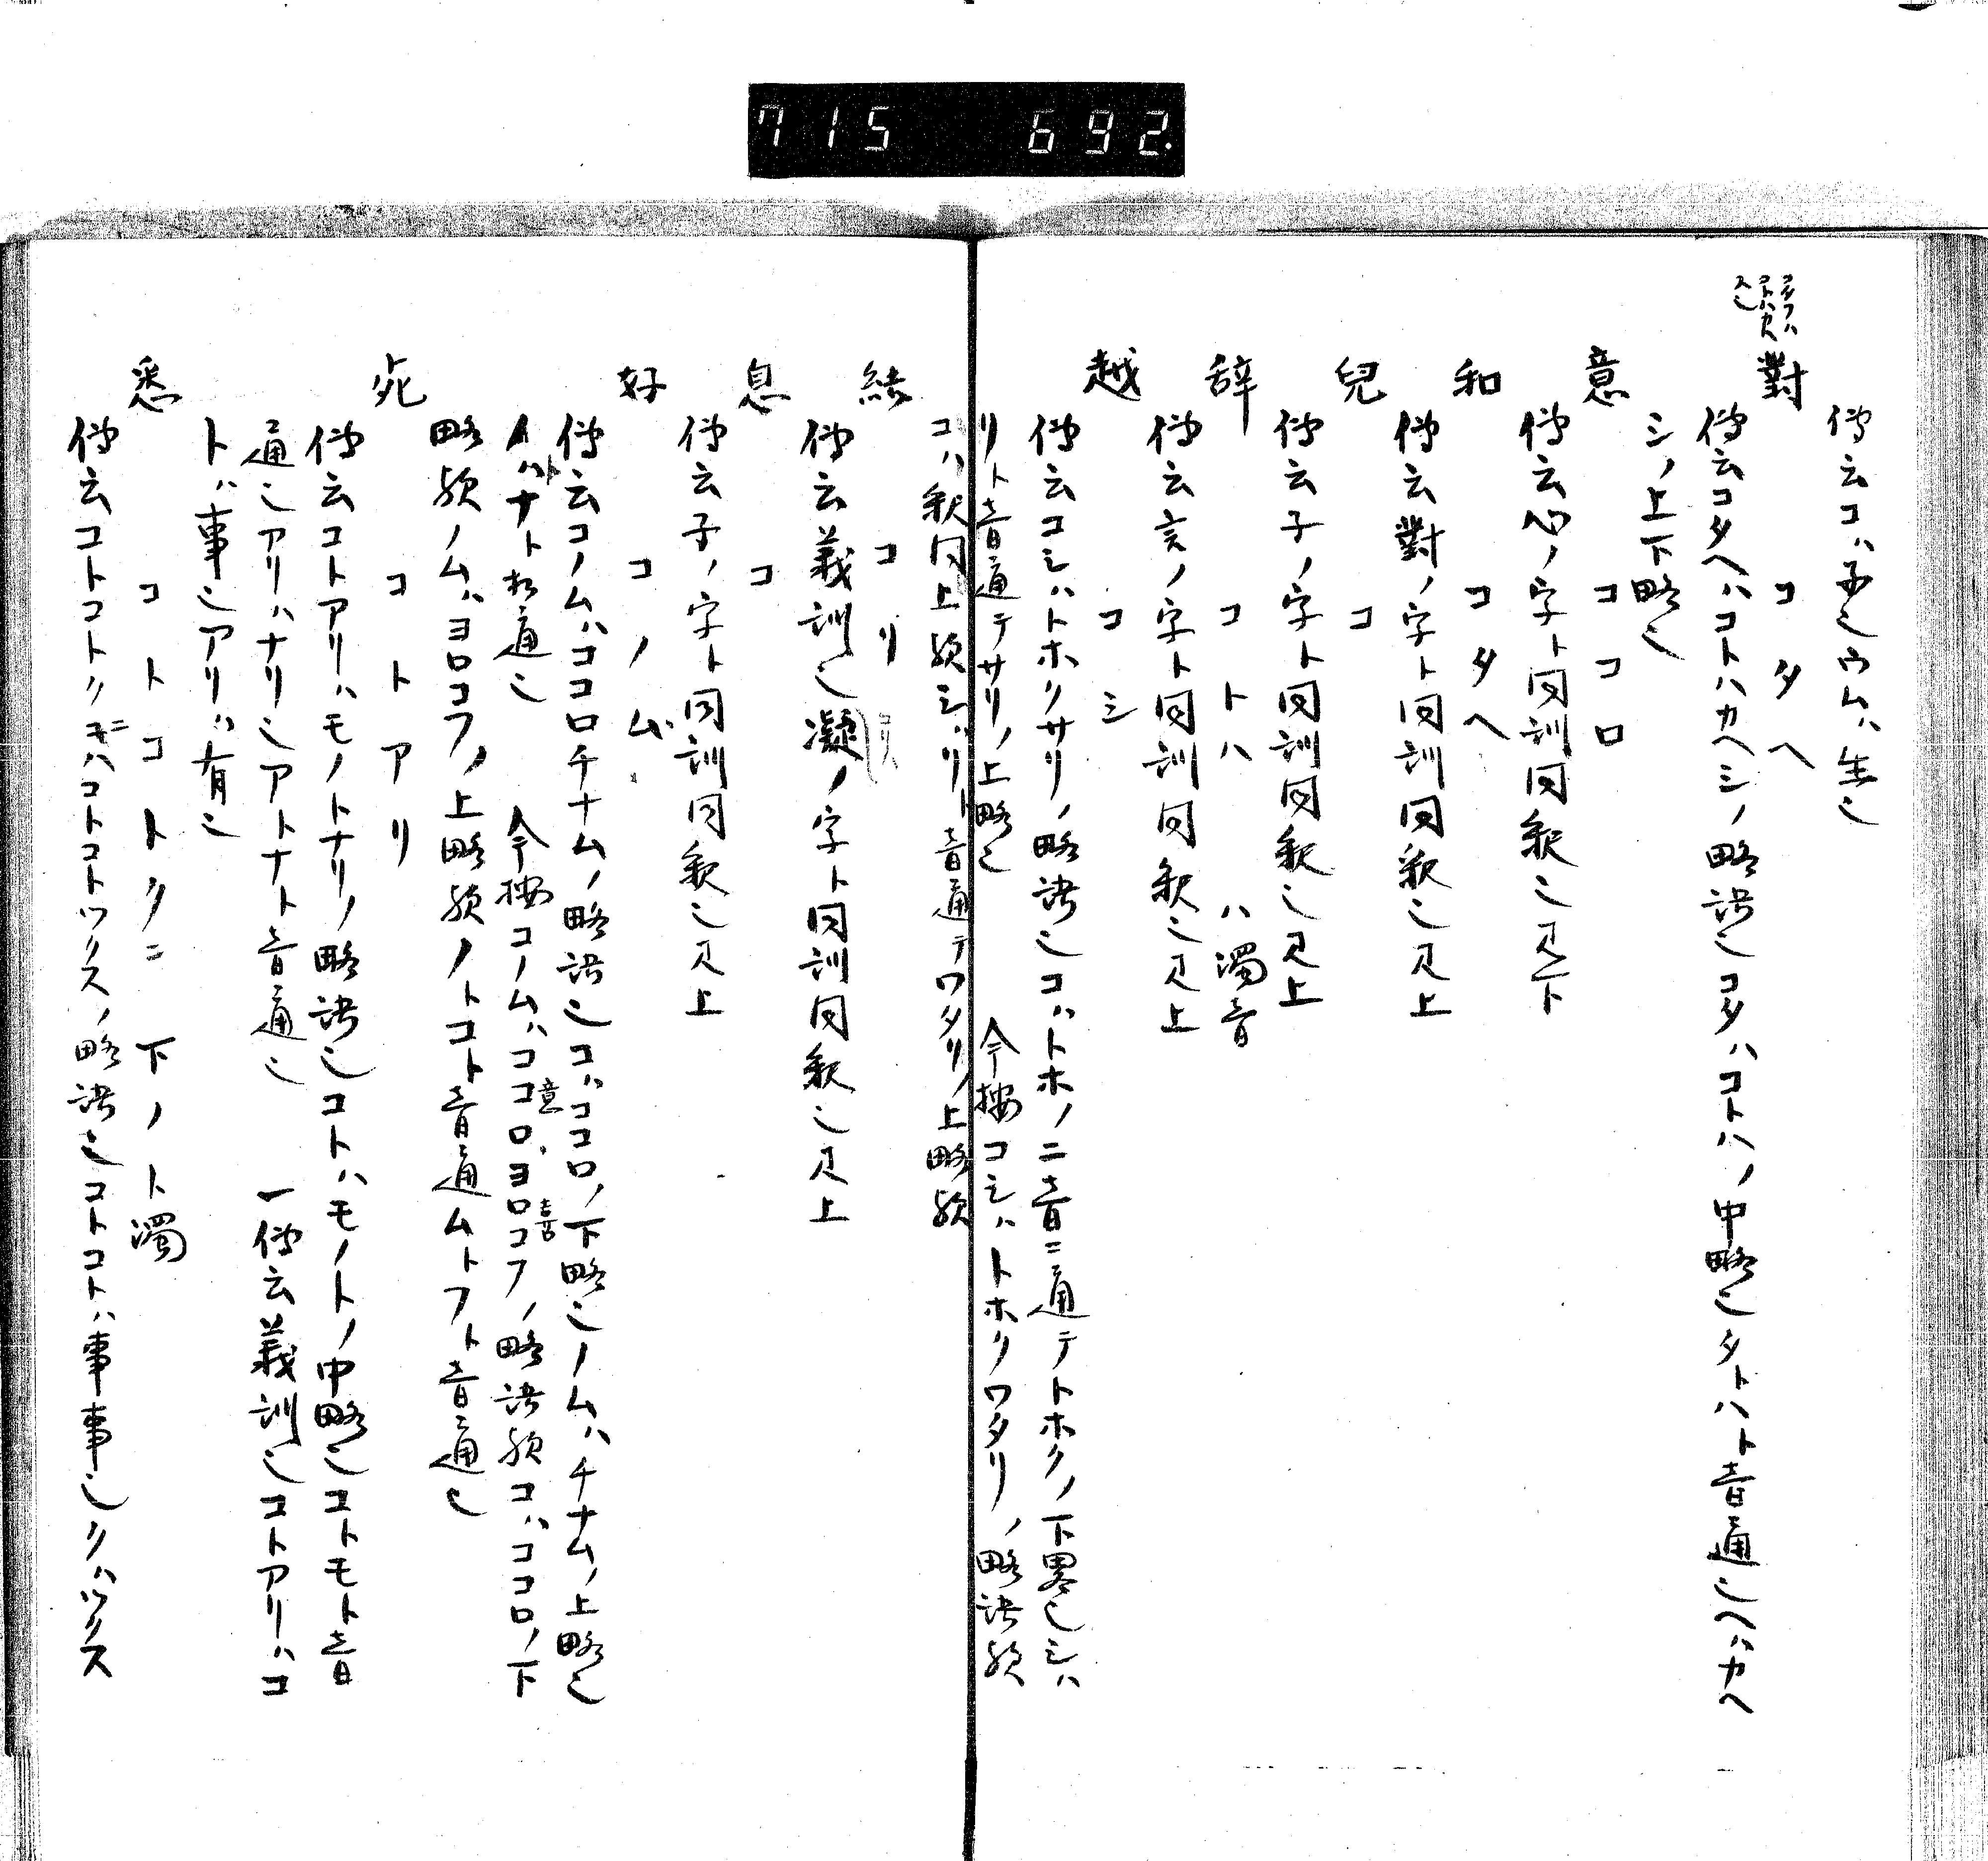 715 692.
傳云コハ子也ウムハ生也
對 コタヘ
傳云コタヘハコトハカヘシノ略語也コタハコトハノ中略也タトハト音通也ヘハカヘ
シノ上下略也
意 ココロ
傳云心ノ字ト同訓同釈也見下
和 コタヘ
傳云對ノ字ト同訓同釈也見上
兒 コ
傳云子ノ字ト同訓同釈也見上
辞 コトハ ハ濁音
傳云言ノ字ト同訓同釈也見上
越 コシ
傳云コシハトホクサリノ略語也コハトホノ二音ニ通テトホクノ下畧也シハ
リト音通テサリノ上略也 今按コシハトホクワタリノ略語歟
コハ釈同上歟シハリト音通テワタリノ上略歟
結 コリ
傳云義訓也凝ノ字ト同訓同釈也見上
息 コ
傳云子ノ字ト同訓同釈也見上
好 コノム
傳云コノムハココロチナムノ略語也コハココロノ下略也ノムハチナムノ上略也
ノハナト相通也 今按コノムハココロヨロコフノ略語歟コハココロノ下
意 喜
略歟ノムハヨロコフノ上略歟ノトコト音通ムトフト音通也
死 コトアリ
傳云コトアリハモノトナリノ略語也コトハモノトノ中略也コトモト音
通也アリハナリ也アトナト音通也 一傳云義訓也コトアリハコ
トハ事也アリハ有也
悉 コトコトクニ 下ノト濁
傳云コトコトクニハコトコトツクスノ略語也コトコトハ事事也クハツクス